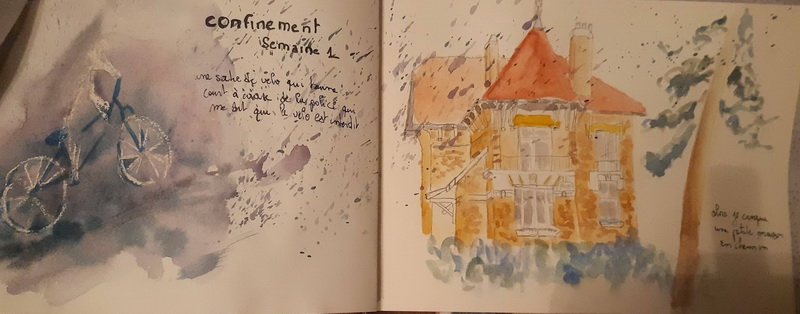 confinement
Semaine 1
une sortie vélo qui tourne
court à cause de la police qui
me dit que le vélo est interdit
alors je croque
une ptite maison
en chemin